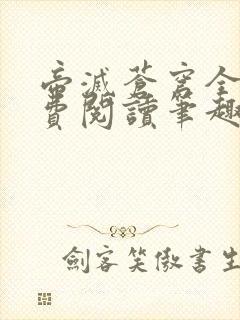 帝滅蒼穹全
費閱讀筆趣
劍客笑傲書生